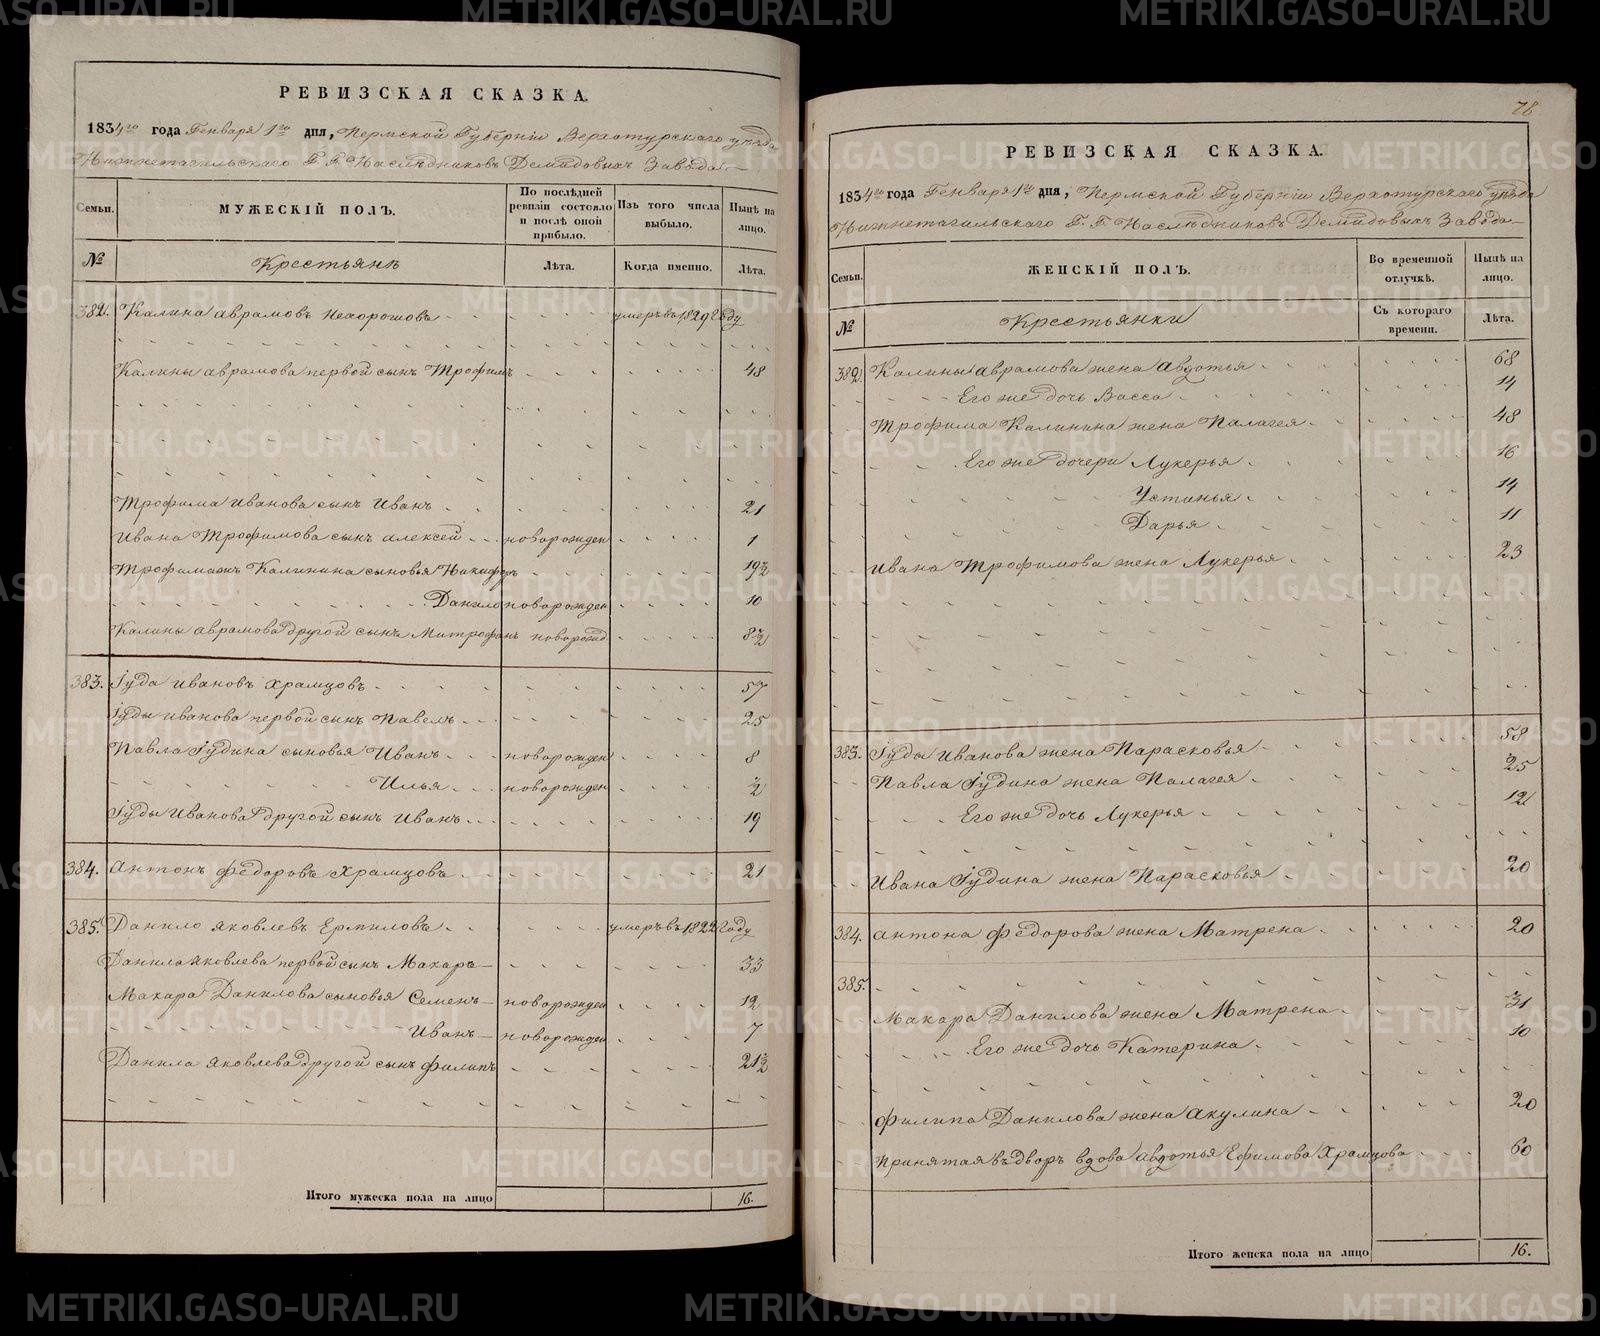 РЕВИЗСКАЯ СКАЗКА.
1834го года Генваря 1го дня, Пермской Губерніи Верхотурскаго уѣзда
Нижнетагильскаго Г. Г. Наслѣдниковъ Демидовыхъ Завода
Семьи. МУЖЕСКІЙ ПОЛЪ. По послѣдней ревизіи состояло и послѣ оной прибыло. Изъ того числа выбыло. Нынѣ на лицо.
№ Крестьянѣ Лѣта. Когда именно. Лѣта.
382. Калина Аврамовъ Нехорошовъ умеръ въ 1829 году
Калины Аврамова первой сынъ Трофимъ 48
Трофима Иванова сынъ Иванъ 21
Ивана Трофимова сынъ Алексей новорожден 1
Трофимажъ Калинина сыновья Никифоръ 19½
Данило новорожден 10
Калины Аврамова другой сынъ Митрофанъ новорожд 8½
383. Іуда Ивановъ Храмцовъ 57
Іуды Иванова первой сынъ Павелъ 25
Павла Іудина сыновья Иванъ новорожден 8
Илья новорожден ½
Іуды Иванова другой сынъ Иванъ 19
384. Антонъ Федоровъ Храмцовъ 21
385. Данило Яковлевъ Ермиловъ умеръ въ 1822 году
Данила Яковлева первой сынъ Макаръ 33
Макара Данилова сыновья Семенъ новорожден 12
Иванъ новорожден 7
Данила Яковлева другой сынъ Филипъ 21½
Итого мужеска пола на лицо 16.
78
РЕВИЗСКАЯ СКАЗКА.
1834го года Генваря 1го дня, Пермской Губерніи Верхотурскаго уѣзда
Нижнетагильскаго Г. Г. Наслѣдниковъ Демидовыхъ Завода
Семьи. ЖЕНСКІЙ ПОЛЪ. Во временной отлучкѣ. Нынѣ на лицо.
№ Крестьянки Съ котораго времени. Лѣта.
382. Калины Аврамова жена Авдотья 68
Его же дочь Васса 14
Трофима Калинина жена Палагея 48
Его же дочери Лукерья 16
Устинья 14
Дарья 11
Ивана Трофимова жена Лукерья 23
383. Іуды Иванова жена Парасковья 58
Павла Іудина жена Палагея 25
Его же дочь Лукерья 12
Ивана Іудина жена Парасковья 20
384. Антона Федорова жена Матрена 20
385.
Макара Данилова жена Матрена 31
Его же дочь Катерина 10
Филипа Данилова жена Акулина 20
Принятая въ дворъ вдова Авдотья Ефимова Храмцова 60
Итого женска пола на лицо 16.
METRIKI.GASO-URAL.RU